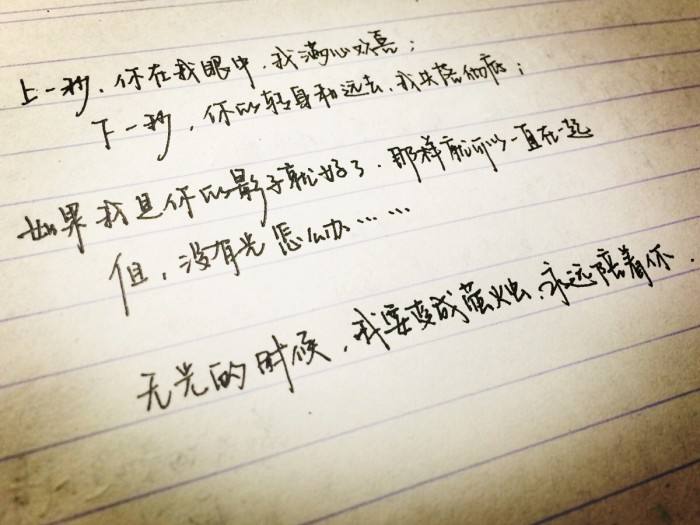 上一秒，你在我眼中，我满心欢喜；
下一秒，你的转身和远去，我失落彻底；
如果我是你的影子就好了，那样就可以一直在一起
但，没有光怎么办……
无光的时候，我要变成萤火虫，永远陪着你.